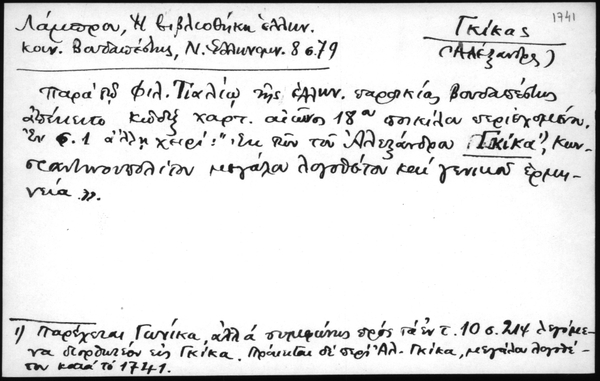 1741
Λάμπρου, Ἡ βιβλιοθήκη ἑλλην.
κοιν. Βουδαπέστης, Ν. Ἑλληνομν. 8 σ. 79
Γκίκας
(Ἀλέξανδρος)
παρὰ τῷ φιλ. τῆς ἑλλην. παροικίας Βουδαπέστης
ἀπόκειται κῶδιξ χαρτ. αἰῶνος 18ου ποικίλου περιεχομένου.
Ἐν σ. 1 ἄλλῃ χειρί: "Ἐκ τῶν τοῦ Ἀλεξάνδρου Γκίκα 1), Κων-
σταντινουπολίτου μεγάλου λογοθέτου καὶ γενικοῦ ἑρμη-
νέως».
1) Παρέχεται Γωνίκα, ἀλλὰ συμφώνως πρὸς τὰ ἐν τ. 10 σ. 214 λεγόμε-
να διορθωτέον εἰς Γκίκα. Πρόκειται δὲ περὶ Ἀλ. Γκίκα, μεγάλου λογοθέ-
του κατὰ τὸ 1741.